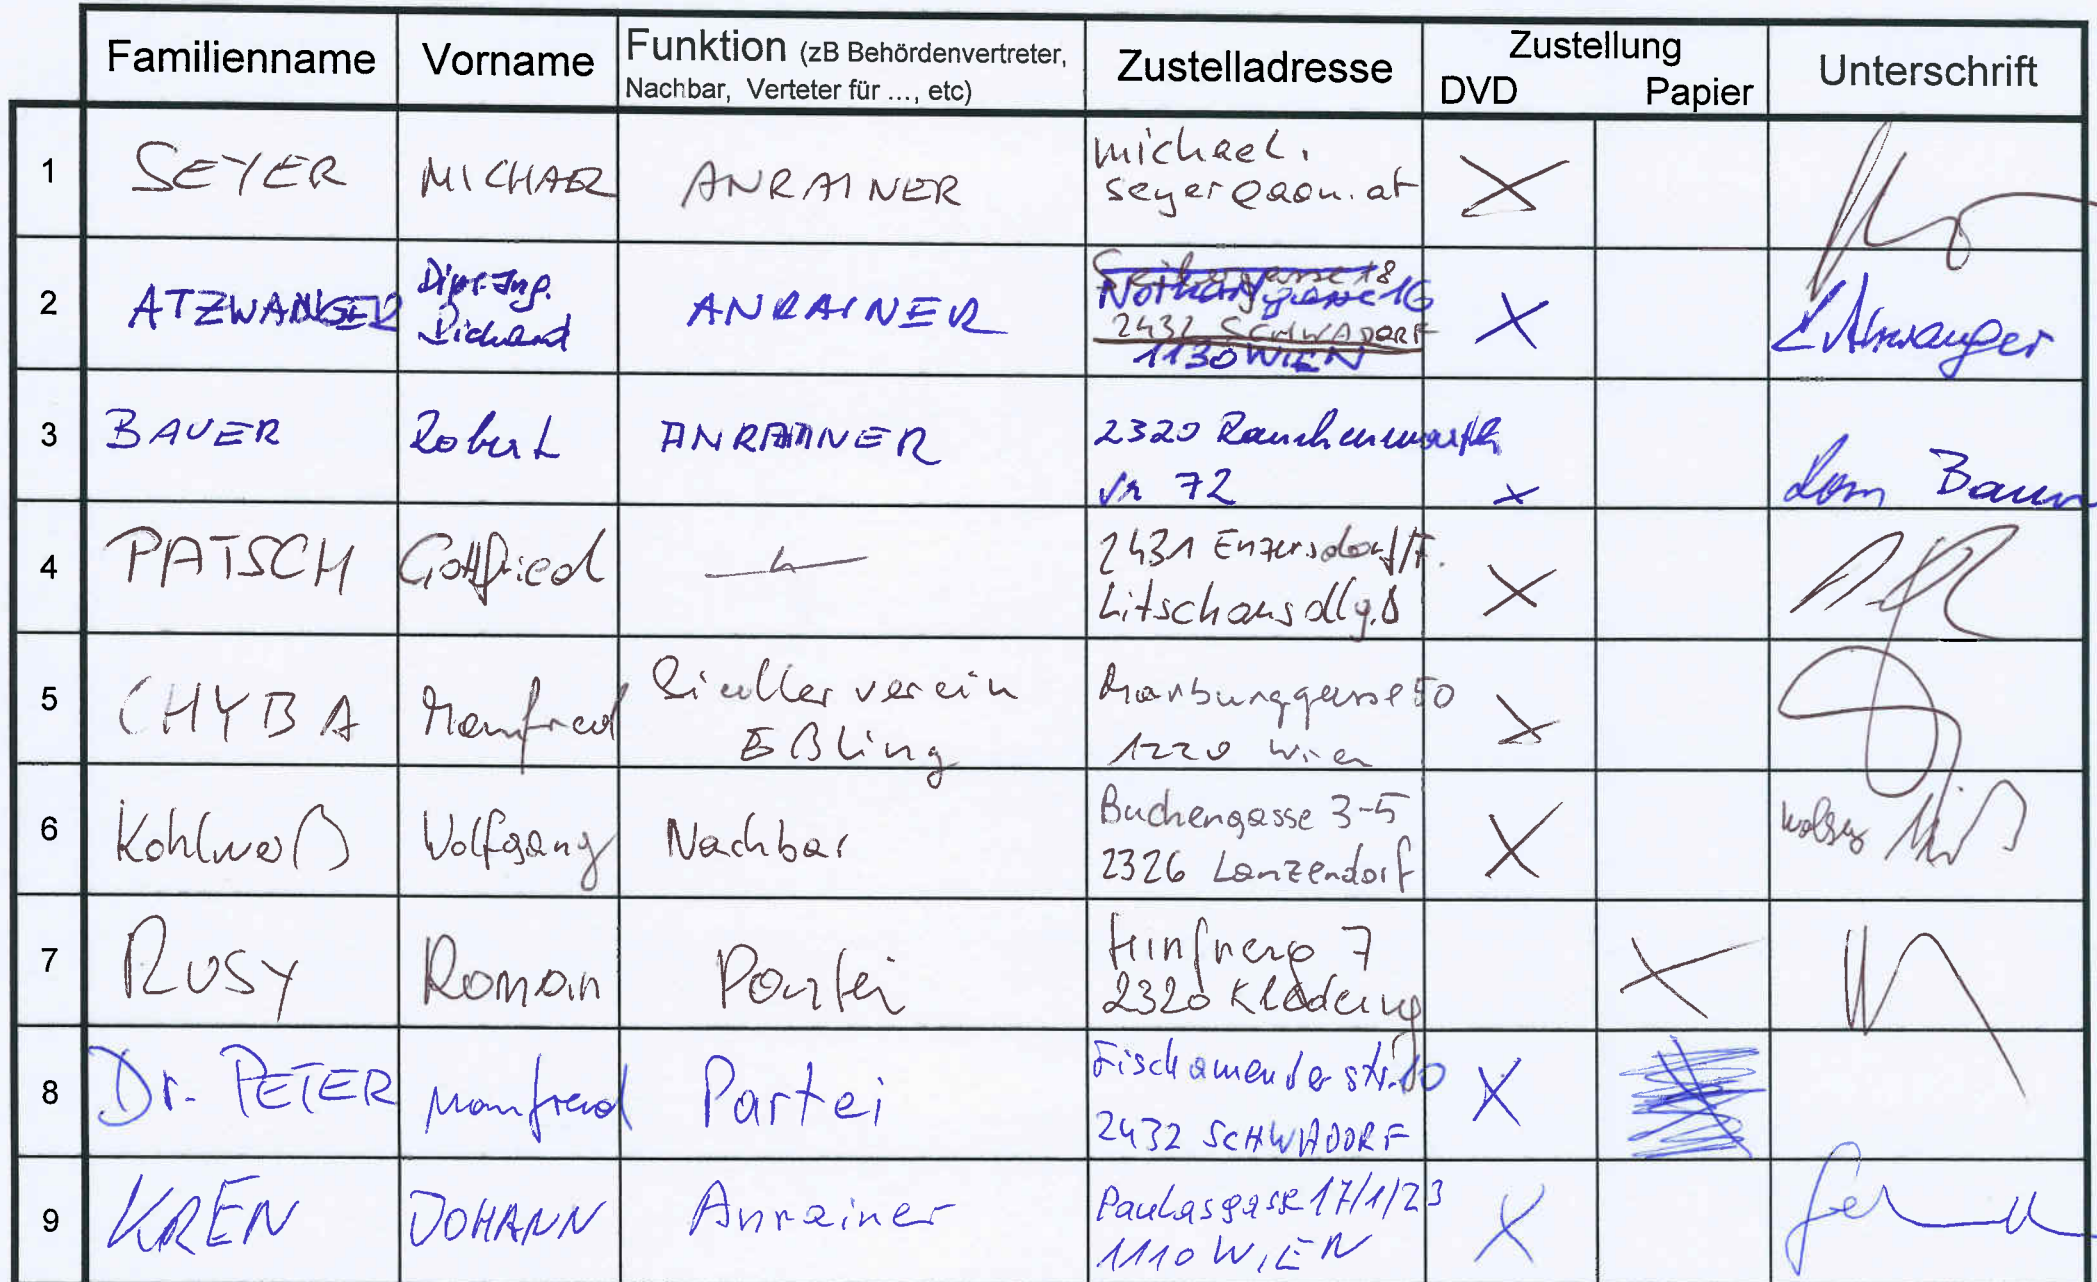 Familienname Vorname Funktion (zB Behördenvertreter, Nachbar, Verteter für ..., etc) Zustelladresse Zustellung DVD Papier Unterschrift
1 SEYER MICHAEL ANRAINER michael.
seyer@aon.at
2 ATZWANGER Dipl.-Ing.
Richard ANRAINER
gasse 16
2432 SCHWADORF
1130 WIEN
3 BAUER Robert ANRAINER 2320 Rauchenwarth
Nr 72
Bauer
4 PATSCH Gottfried 2431 Enzersdorf/F.
5 CHYBA Manfred Siedlerverein
Eßling
Marburggasse 50
1220 Wien
6 Kohlweiß Wolfgang Nachbar Buchengasse 3-5
2326 Lanzendorf
7 RUSY Roman Partei
7
2320 Kledering
8 Dr. PETER Manfred Partei Fischamenderstr. 10
2432 SCHWADORF
9 KREN JOHANN Anrainer 17/1/23
1110 WIEN